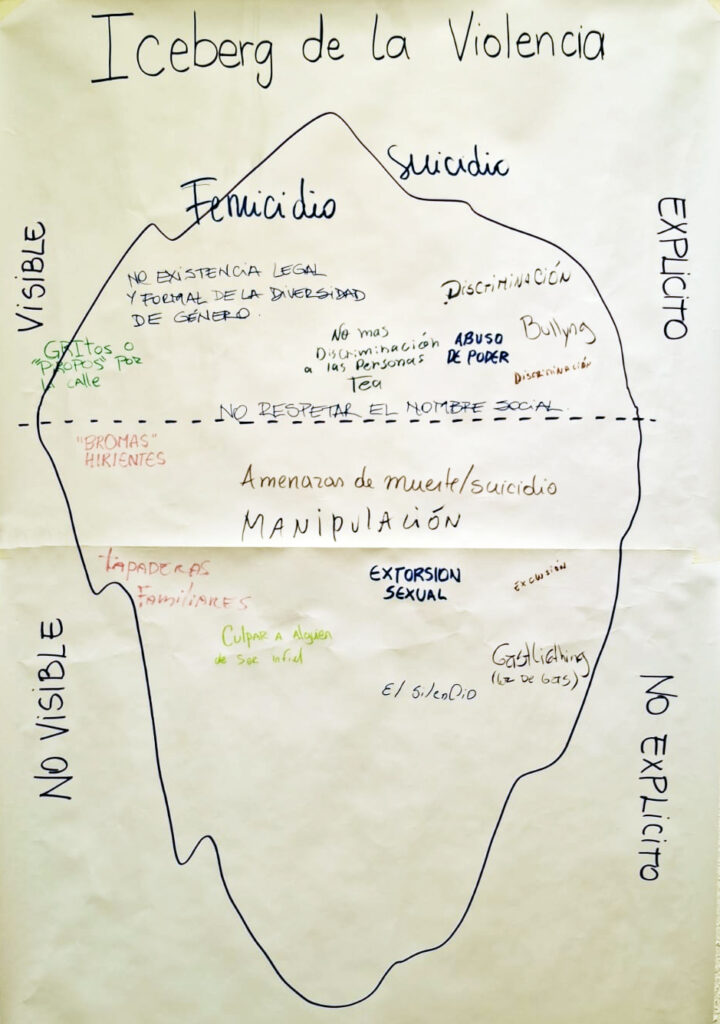 Iceberg de la Violencia
Suicidio
Femicidio
VISIBLE
EXPLÍCITO
NO EXISTENCIA LEGAL
Y FORMAL DE LA DIVERSIDAD
DE GÉNERO.
DISCRIMINACIÓN
GRITOS O
"PIROPOS" POR
LA CALLE
No mas
Discriminación
a las Personas
Tea
ABUSO
DE PODER
Bullyng
DISCRIMINACIÓN
NO RESPETAR EL NOMBRE SOCIAL.
"BROMAS"
HIRIENTES
Amenazas de muerte/suicidio
MANIPULACIÓN
TAPADERAS
FAMILIARES
EXTORSION
SEXUAL
EXCLUSIÓN
Culpar a alguien
de ser infiel
GastLicthing
(LUZ DE GAS)
El silencio
NO VISIBLE
NO EXPLÍCITO